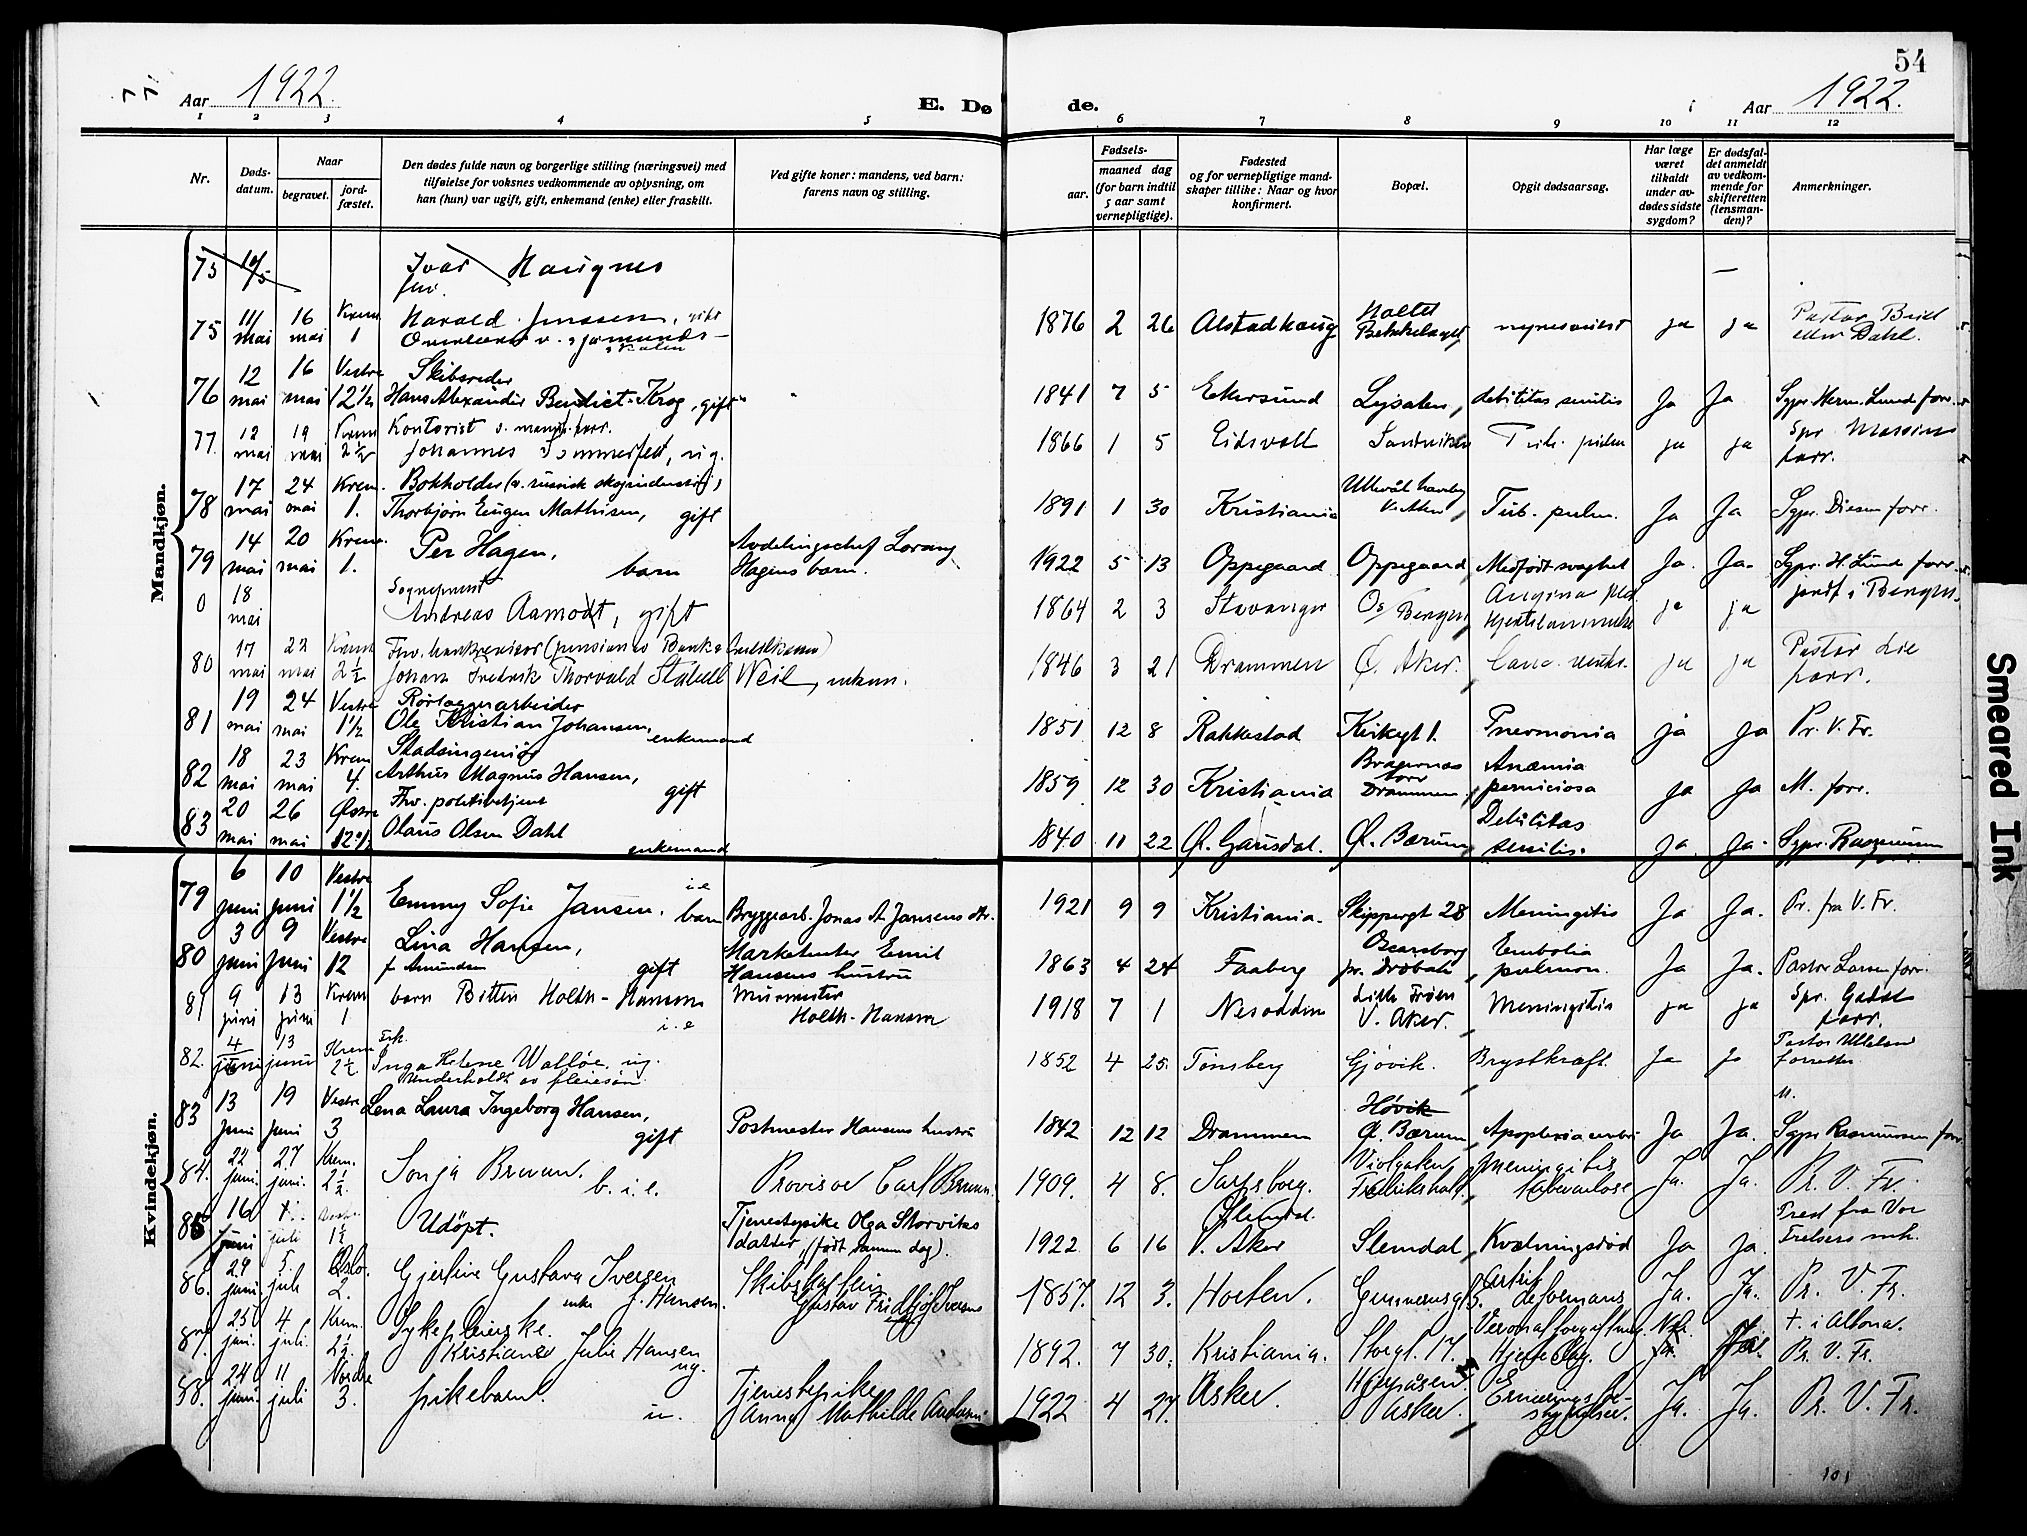 54
Aar 1922.
E. Døde.
Aar 1922.
1 2 3 4 5 6 7 8 9 10 11 12
Nr.
Døds-
datum.
Naar
begravet.
jord-
fæstet.
Den dødes fulde navn og borgerlige stilling (næringsvei) med
tilføielse for voksnes vedkommende av oplysning, om
han (hun) var ugift, gift, enkemand (enke) eller fraskilt.
Ved gifte koner: mandens, ved barn:
farens navn og stilling.
Fødsels-
aar.
maaned dag
(for barn indtil
5 aar samt
vernepligtige).
Fødested
og for vernepligtige mand-
skaper tillike: Naar og hvor
konfirmert.
Bopæl.
Opgit dødsaarsag.
Har læge
været
tilkaldt
under av-
dødes sidste
sygdom?
Er dødsfal-
det anmeldt
av vedkom-
mende for
skifteretten
(lensman-
den)?
Anmerkninger.
Mandkjøn.
75 10/5 Ivar Haugnes
75 11 mai 16 mai Krem 1 Harald Jenssen, gift
1876 2 26 Alstadhaug Holtet Bekkelaget ja ja Pastor
eller Dahl.
76 12 mai 16 mai Vestre 12 1/2 Skibsreder
Hans Alexander Benedict Krog, gift
1841 7 5 Ekersund Lysaker, debilitas senilis Ja Ja Sypr. Herm. Lunde forr.
77 12 mai 19 mai Krem 2 1/2 Kontorist
Johannes Sommerfelt, ug.
1866 1 5 Eidsvoll Sandviken Tub. pulm ja ja Spr
forr.
78 17 mai 24 mai Krem. 1. Bokholder
Thorbjørn Eugen Mathisen, gift
1891 1 30 Kristiania Ullevål haveby V. Aker Tub. pulm. Ja Ja Sypr. Diesen forr.
79 14 mai 20 mai Krem. 1. Per Hagen, barn Avdelingschef Lorang
Hagens barn.
1922 5 13 Oppegaard Oppegaard Medfødt svaghet Ja. Ja. Sypr. H. Lunde forr.
0 18 mai Sogneprest
Andreas Aamodt, gift
1864 2 3 Stavanger Os Bergen Angina
ja ja jordf. i Bergen.
80 17 mai 22 mai Krem 2 1/2 Fhv. bankrevisor
Johan Fredrik Thorvald Stabell Weil, enkem.
1846 3 21 Drammen Ø. Aker. Canc. ja ja Pastor Lie
forr.
81 19 mai 24 mai Vestre 1 1/2 Rørlæggerarbeider
Ole Kristian Johansen, enkemand
1851 12 8 Rakkestad Kirkegt 1. Pnevmonia ja Ja Pr. V. Fr.
82 18 mai 23 mai Krem 4. Stadsingeniør
Arthur Magnus Hansen, gift
1859 12 30 Kristiania Bragernes torv Drammen, Anæmia perniciosa ja Ja M. forr.
83 20 mai 26 mai Østre 12 1/2 Fhv. politibetjent
Olaus Olsen Dahl enkemand
1840 11 22 Ø. Gausdal. Ø. Bærum, Debilitas senilis. Ja. Ja. Sypr. Rasmussen
Kvindekjøn.
79 6 juni 10 juni Vestre 1 1/2 Emmy Sofie Jansen, i.e barn Bryggearb. Jonas A. Jansens dtr.
1921 9 9 Kristiania. Skippergt 28 Meningitis Ja Ja. Pr. fra V. Fr.
80 3 juni 9 juni Vestre 12 Lina Hansen,
f Amundsen gift Marketenter Emil
Hansens hustru
1863 4 24 Faaberg Oscarsborg pr. Drøbak Embolia pulmon. Ja Ja. Pastor Larsen forr.
81 9 juni 13 juni Krem 1 barn Bitten Holth-Hansen i.e Murmester
Holth-Hansen
1918 7 1 Nesodden Lille Frøen V. Aker. Meningitis ja ja Spr.
forr.
82. 4 juni 13 juni Krem 2 1/2 Frk.
Inga Helene Walløe, ug.
Underholdt av pleiesøn.
1852 4 25. Tønsberg Gjøvik. Brystkræft. Ja Ja Pastor Ulleland
forretter
83 13 juni 19 juni Vestre 3 Lena Laura Ingeborg Hansen, gift Postmester Hansens hustru
1842 12 12 Drammen Høvik Ø. Bærum, Apoplexia cerebri Ja Ja. Sypr Rasmussen forr.
84. 22 juni. 27 juni. Krem. 2 1/2. Sonja Bruun. b. i. e. Provisor Carl Bruun.
1909. 4 8. Sarpsborg. Fredrikshald, Meningitis tuberculosa Ja. Ja. Pr. V. Fr.
85 16 juni juli 1 1/2 Udøpt. Tjenestepike Olga Storviks
datter, (født samme dag).
1922 6 16 V. Aker Slemdal, Kvælningsdød Ja Ja. Præst fra Vor
Frelsers mh.
86. 29 juni 5. juli Oslo. 2. Gjertine Gustava Iversen
enke f. Hansen. Skibskaptein
Gustav Fridtjof Iversen
1857. 12 3. Horten. Artrit. deformans Ja. Ja. Pr. V. Fr.
87. 25 juni. 4 juli. Krem. 2 1/2. Sykepleierske.
Kristiane Julie Hansen ug.
1892. 7 30. Kristiania. Storgt. 17. Veronalforgiftning. Hjerteslag. † i Altona.
Pr. V. Fr.
88. 24 juni. 11 juli Nordre 3. Pikebarn. u. Tjenestepike
Anna Mathilde
1922 4 27. Asker. Asker. Ernæringsfor-
styrrelser. Ja. Ja. Pr. V. Fr.
101
Smeared Ink